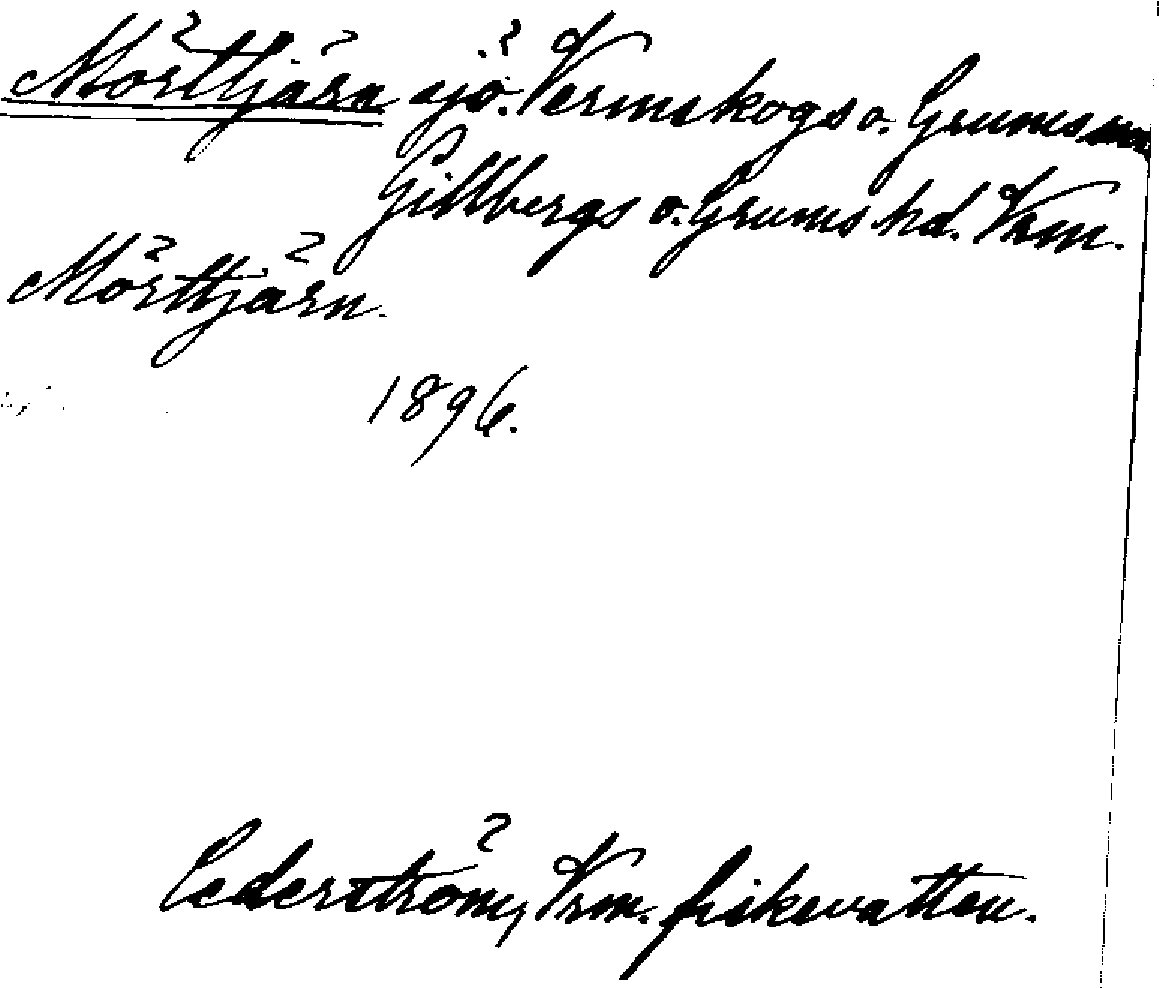 Mörttjärn sjö. Vermskogs o. Grums
Gillbergs o. Grums hd. Vrm.
Mörttjärn.
1896.
Cederström, Vrm. fiskevatten.